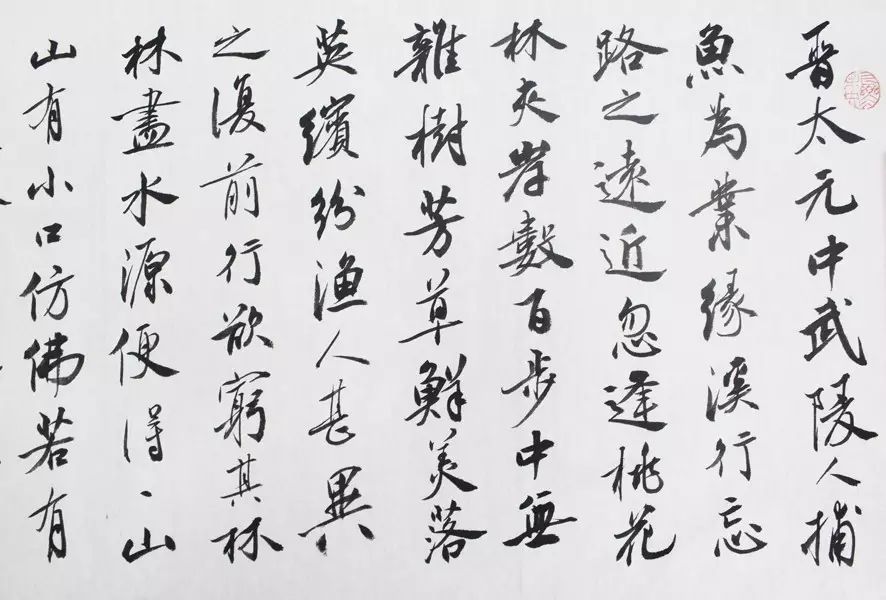 晋太元中武陵人捕
魚為業緣溪行忘
路之遠近忽逢桃花
林夾岸數百步中無
雜樹芳草鮮美落
英繽紛漁人甚異
之復前行欲窮其林
林盡水源便得一山
山有小口仿佛若有